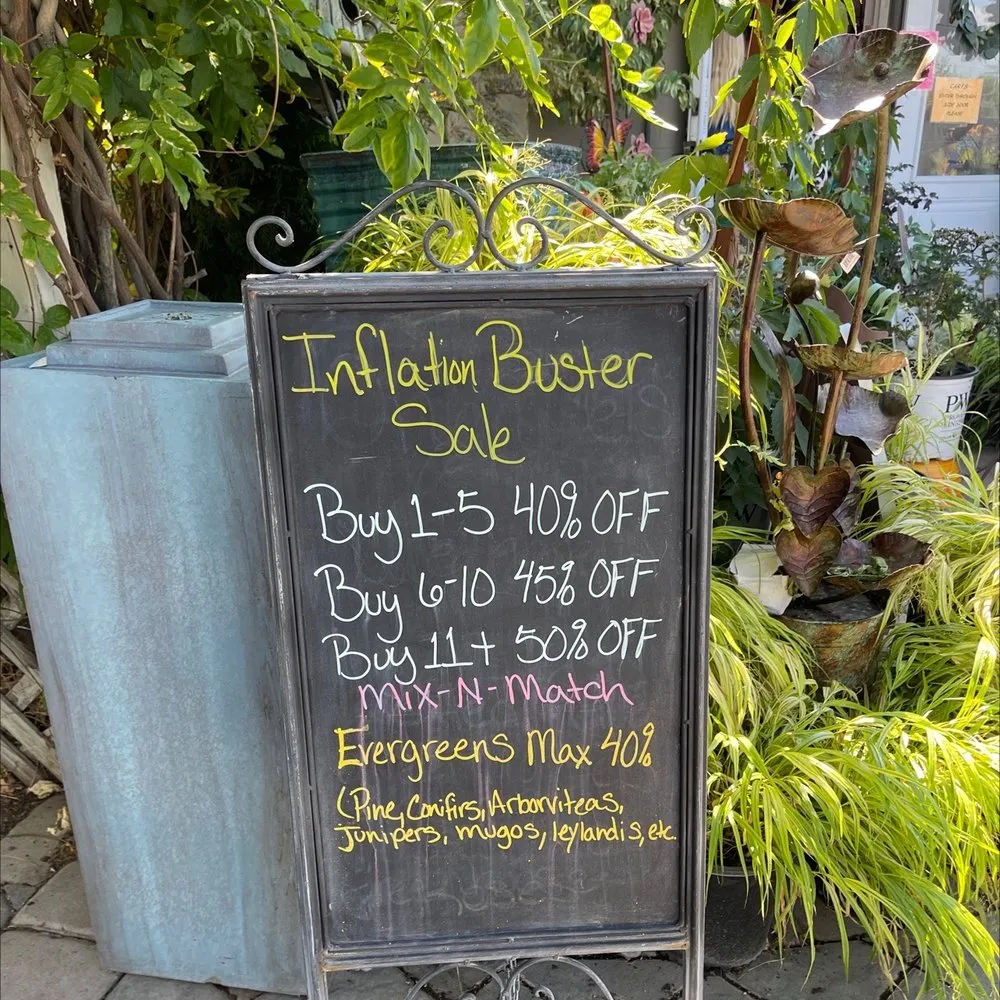 Inflation Buster
Sale
Buy 1-5 40% OFF
Buy 6-10 45% OFF
Buy 11+ 50% OFF
Mix-N-Match
Evergreens Max 40%
(Pine, Conifirs, Arborviteas,
Junipers, mugos, leylandis, etc.
PW